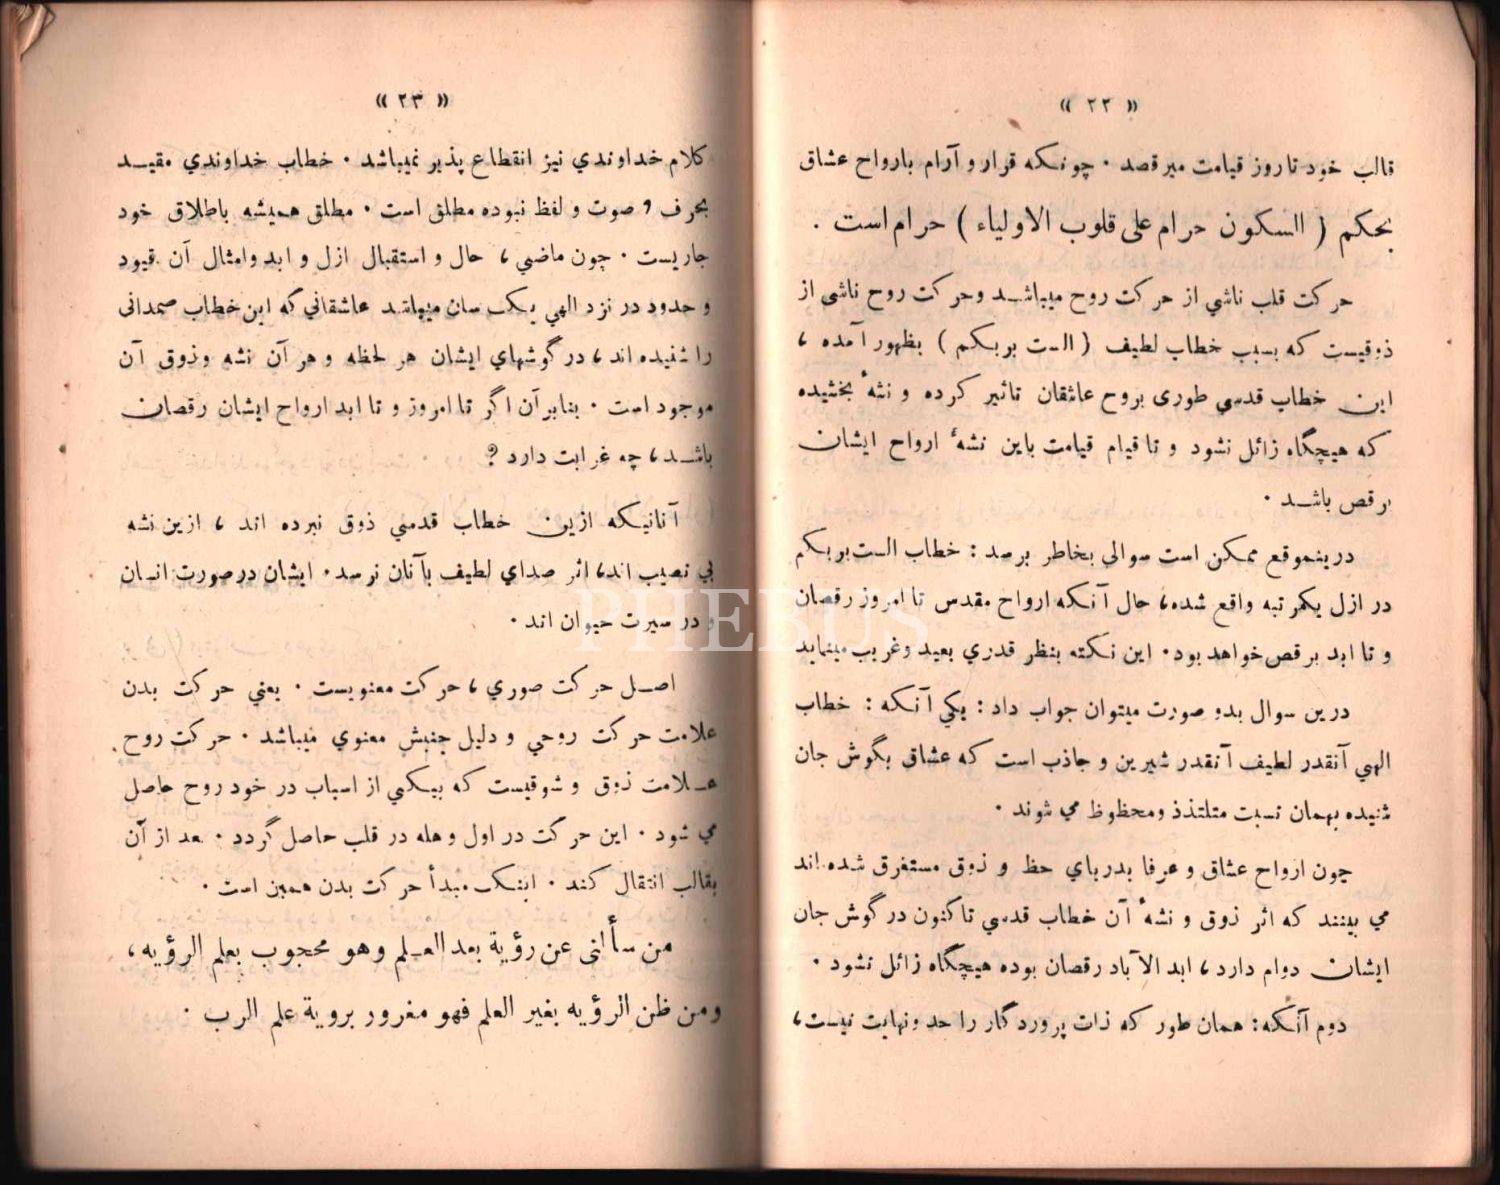 « ٢٢ »
قالب خود تا روز قیامت میرقصد ۰ چونکه قرار و آرام بارواح عشاق
بحکم ( السکون حرام علی قلوب الاولیاء ) حرام است .
حرکت قلب ناشي از حرکت روح میباشد وحرکت روح ناشی از
ذوقیست که بسبب خطاب لطیف ( الست بربکم ) بظهور آمده ،
این خطاب قدسي طوری بروح عاشقان تاثیر کرده و نشهٔ بخشیده
که هیچگاه زائل نشود و تا قیام قیامت باین نشهٔ ارواح ایشان
برقص باشد ۰
درینموقع ممکن است سوالی بخاطر برسد : خطاب الست بربکم
در ازل یکمرتبه واقع شده، حال آنکه ارواح مقدس تا امروز رقصان
و تا ابد برقص خواهد بود۰ این نکته بنظر قدري بعید وغریب مینماید
درین سوال بدو صورت میتوان جواب داد : یکي آنکه : خطاب
الهي آنقدر لطیف آنقدر شیرین و جاذب است که عشاق بگوش جان
شنیده بهمان نسبت متلتذذ ومحظوظ مي شوند ۰
چون ارواح عشاق و عرفا بدریاي حظ و ذوق مستغرق شده اند
مي بینند که اثر ذوق و نشهٔ آن خطاب قدسي تاکنون در گوش جان
ایشان دوام دارد ، ابد الآباد رقصان بوده هیچگاه زائل نشود ۰
دوم آنکه: همان طور که ذات پروردگار را حد ونهایت نیست،
« ٢٣ »
کلام خداوندي نیز انقطاع پذیر نمیباشد ۰ خطاب خداوندي مقید
بحرف و صوت و لفظ نبوده مطلق است ۰ مطلق همیشه باطلاق خود
جاریست ۰ چون ماضي ، حال و استقبال ازل و ابد وامثال آن قیود
و حدود در نزد الهي یک سان میباشد عاشقاني که این خطاب صمدانی
را شنیده اند ، در گوشهاي ایشان هر لحظه و هر آن نشه وذوق آن
موجود است ۰ بنابر آن اگر تا امروز و تا ابد ارواح ایشان رقصان
باشد ، چه غرابت دارد ؟
آنانیکه ازین خطاب قدسي ذوق نبرده اند ، ازین نشه
بي نصیب اند، اثر صداي لطیف بآنان نرسد ۰ ایشان در صورت انسان
و در سیرت حیوان اند ۰
اصل حرکت صوري ، حرکت معنویست ۰ یعني حرکت بدن
علامت حرکت روحي و دلیل جنبش معنوي میباشد ۰ حرکت روح
علامت ذوق و شوقیست که بیکي از اسباب در خود روح حاصل
مي شود ۰ این حرکت در اول وهله در قلب حاصل گردد ۰ بعد از آن
بقالب انتقال کند ۰ اینک مبدأ حرکت بدن همین است ۰
من سألنی عن رؤیة بعد العلم وهو محجوب بعلم الرؤیه ،
ومن ظن الرؤیه بغیر العلم فهو مغرور برویة علم الرب ۰
PHEBUS